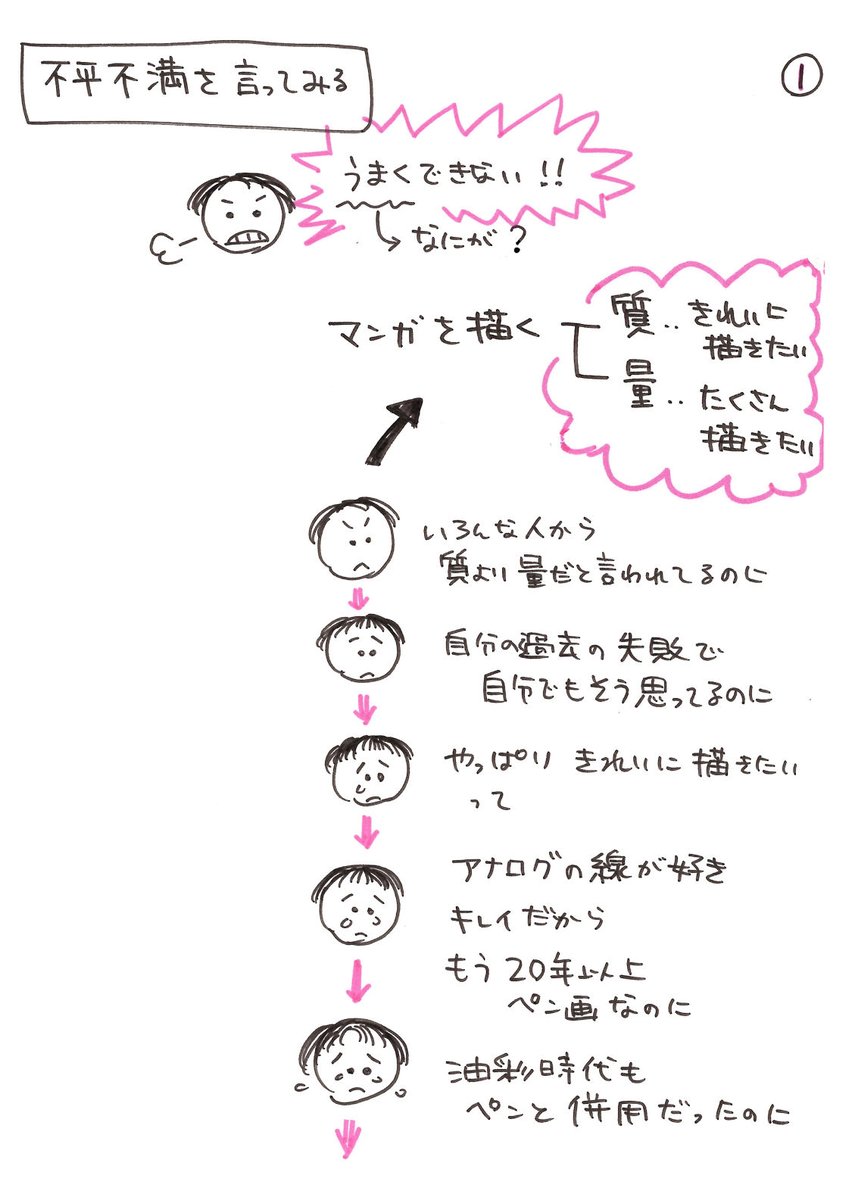 不平不満を言ってみる
①
うまくできない!!
なにが?
マンガを描く
質‥きれいに
描きたい
量‥たくさん
描きたい
いろんな人から
質より量だと言われてるのに
自分の過去の失敗で
自分でもそう思ってるのに
やっぱりきれいに描きたい
って
アナログの線が好き
キレイだから
もう20年以上
ペン画なのに
油彩時代も
ペンと併用だったのに